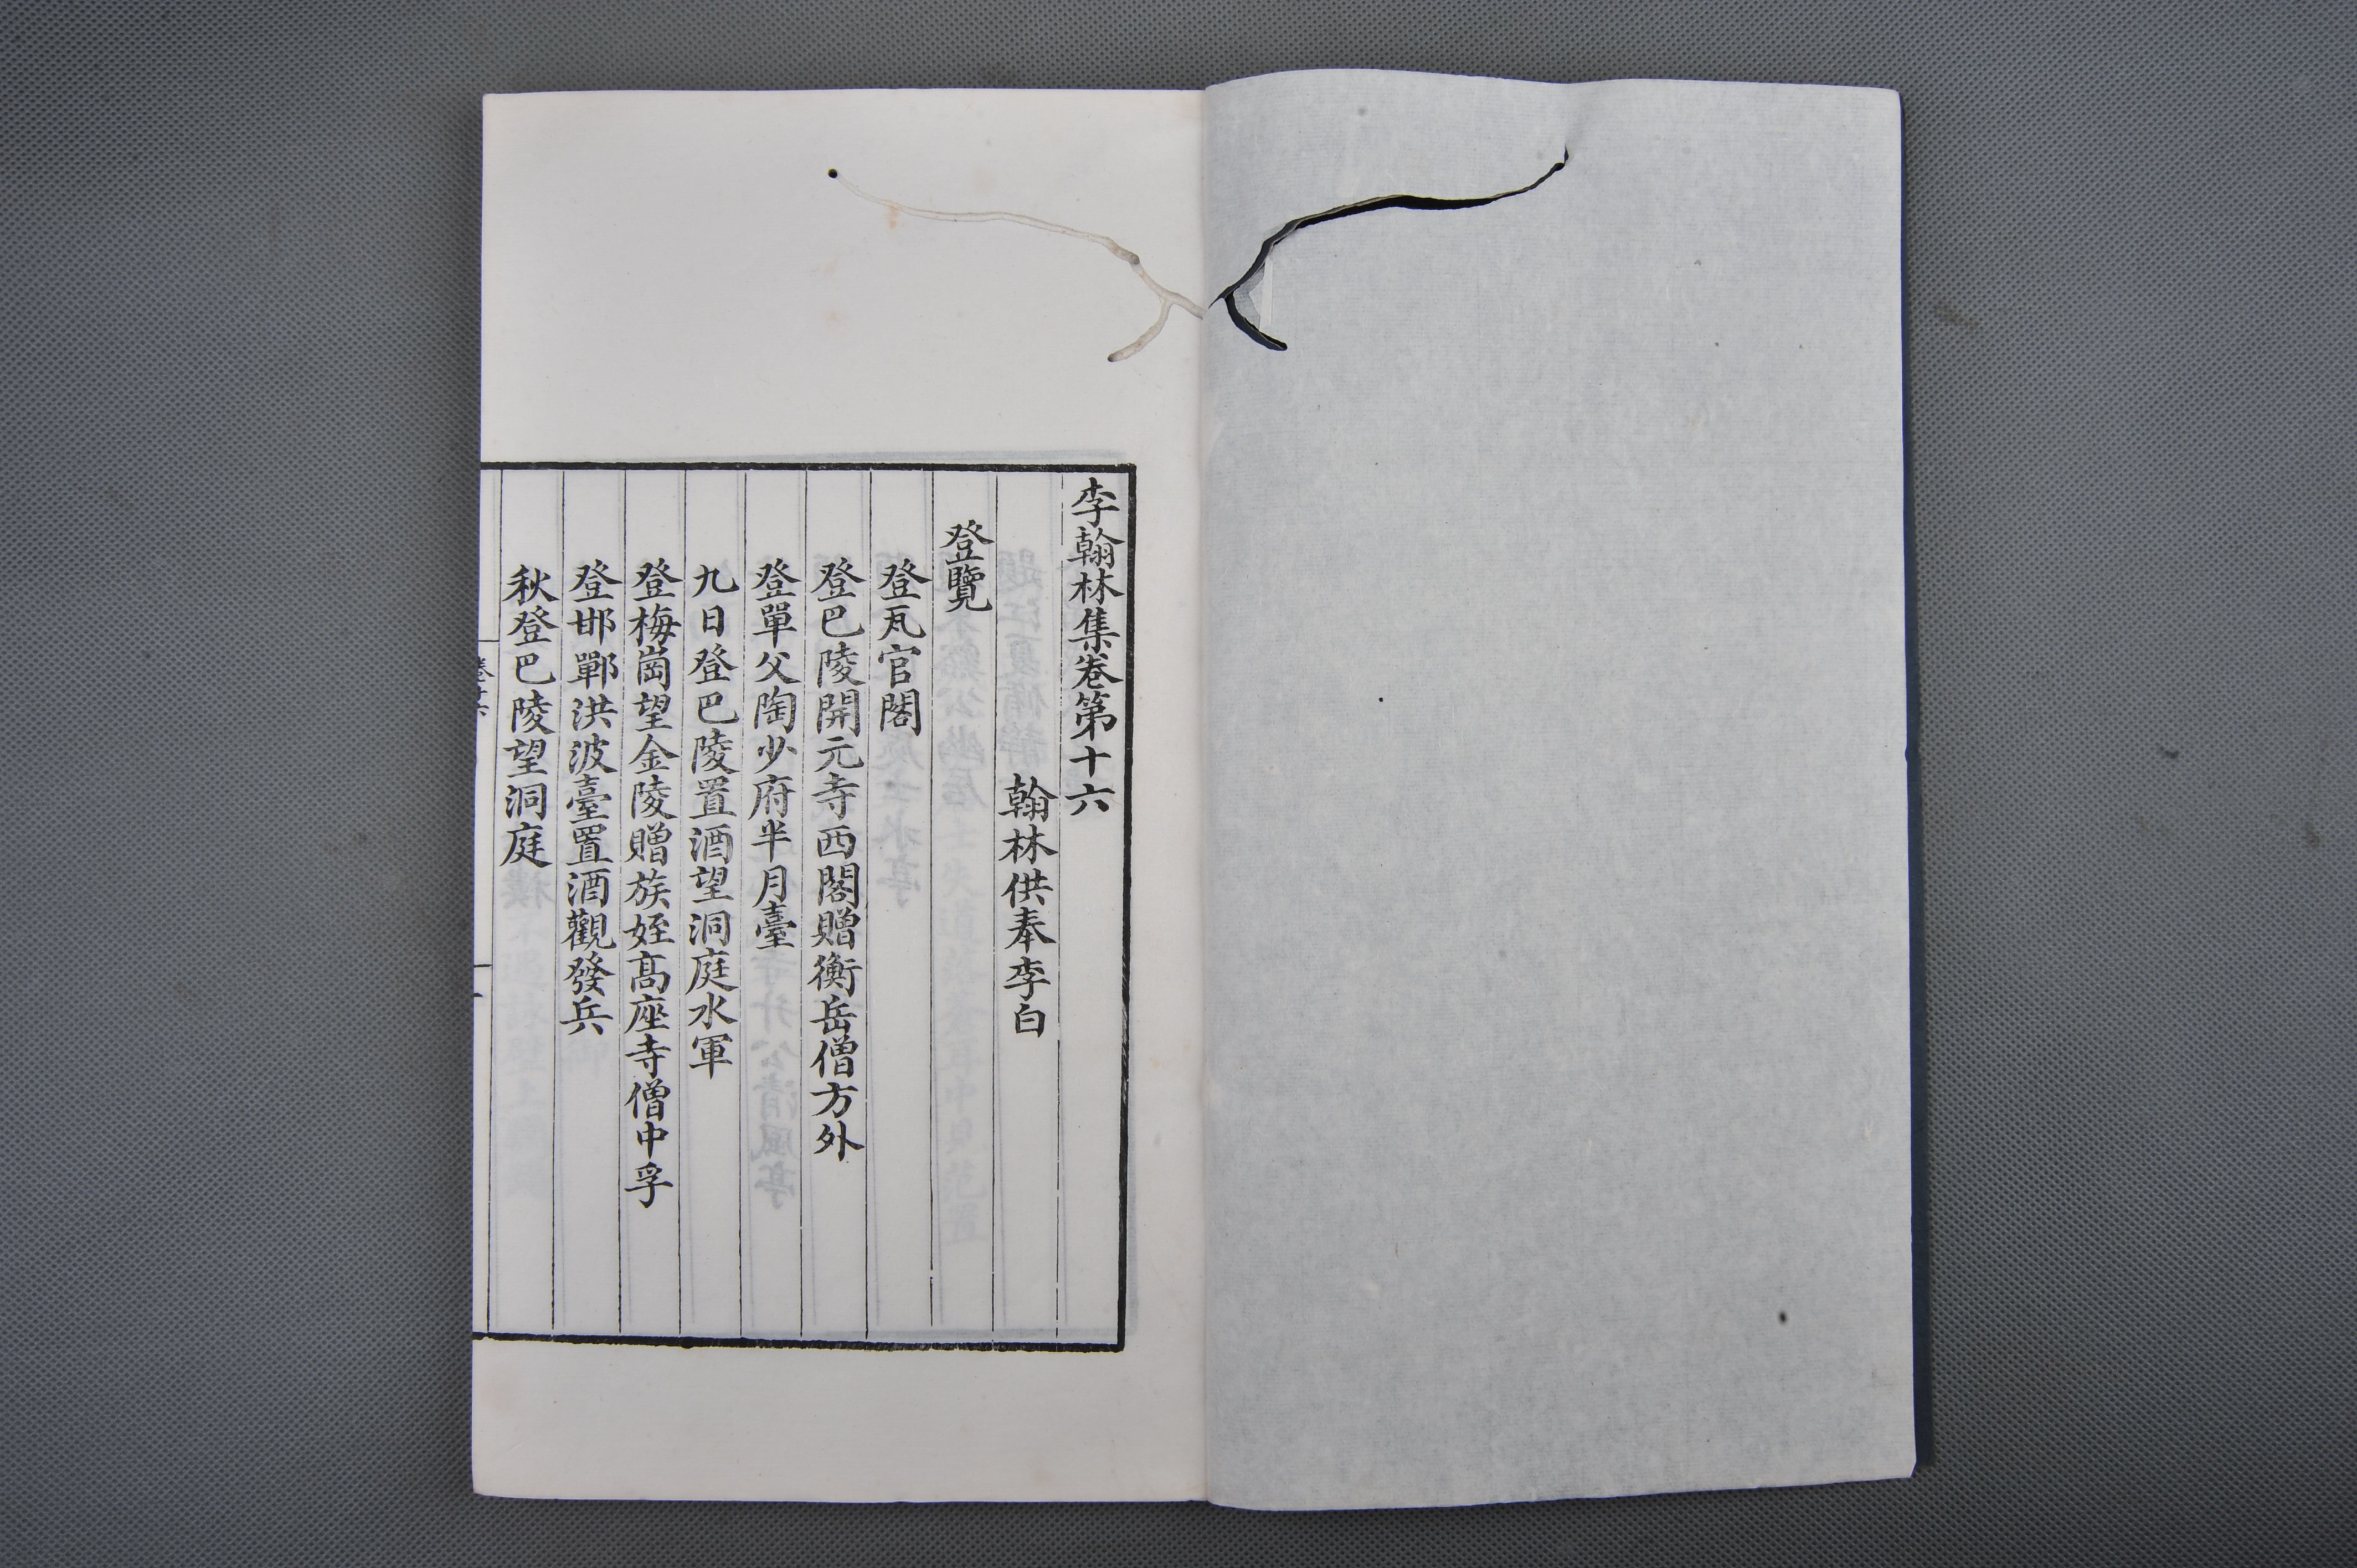 李翰林集卷第十六
翰林供奉李白
登覽
登瓦官閣
登巴陵開元寺西閣贈衡岳僧方外
登單父陶少府半月臺
九日登巴陵置酒望洞庭水軍
登梅崗望金陵贈族姪高座寺僧中孚
登邯鄲洪波臺置酒觀發兵
秋登巴陵望洞庭